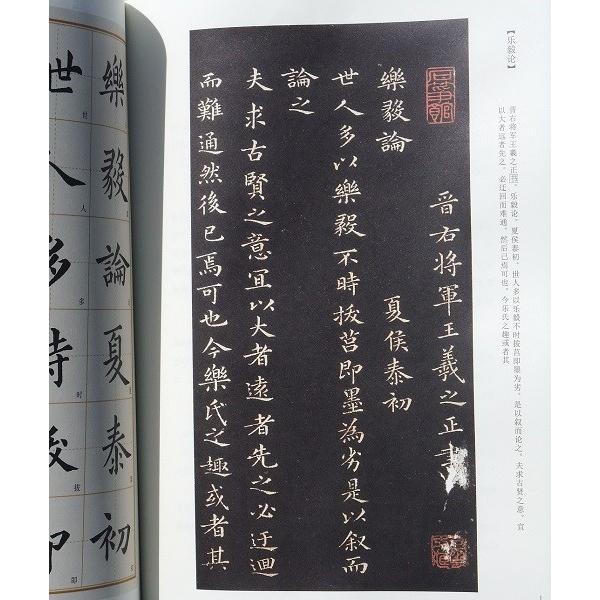 【乐毅论】
晋右将军王羲之正书。乐毅论。夏侯泰初。世人多以乐毅不时拔莒即墨为劣。是以叙而论之。夫求古贤之意。宜
以大者远者先之。必迂回而难通。然后已焉可也。今乐氏之趣或者其
晉右将軍王羲之正書
樂毅論
夏侯泰初
世人多以樂毅不時拔莒即墨為劣是以叙而
論之
夫求古賢之意宜以大者遠者先之必迂迴
而難通然後已焉可也今樂氏之趣或者其
樂毅論夏泰初
世人多時拔即
时
人
多
时
拔
即